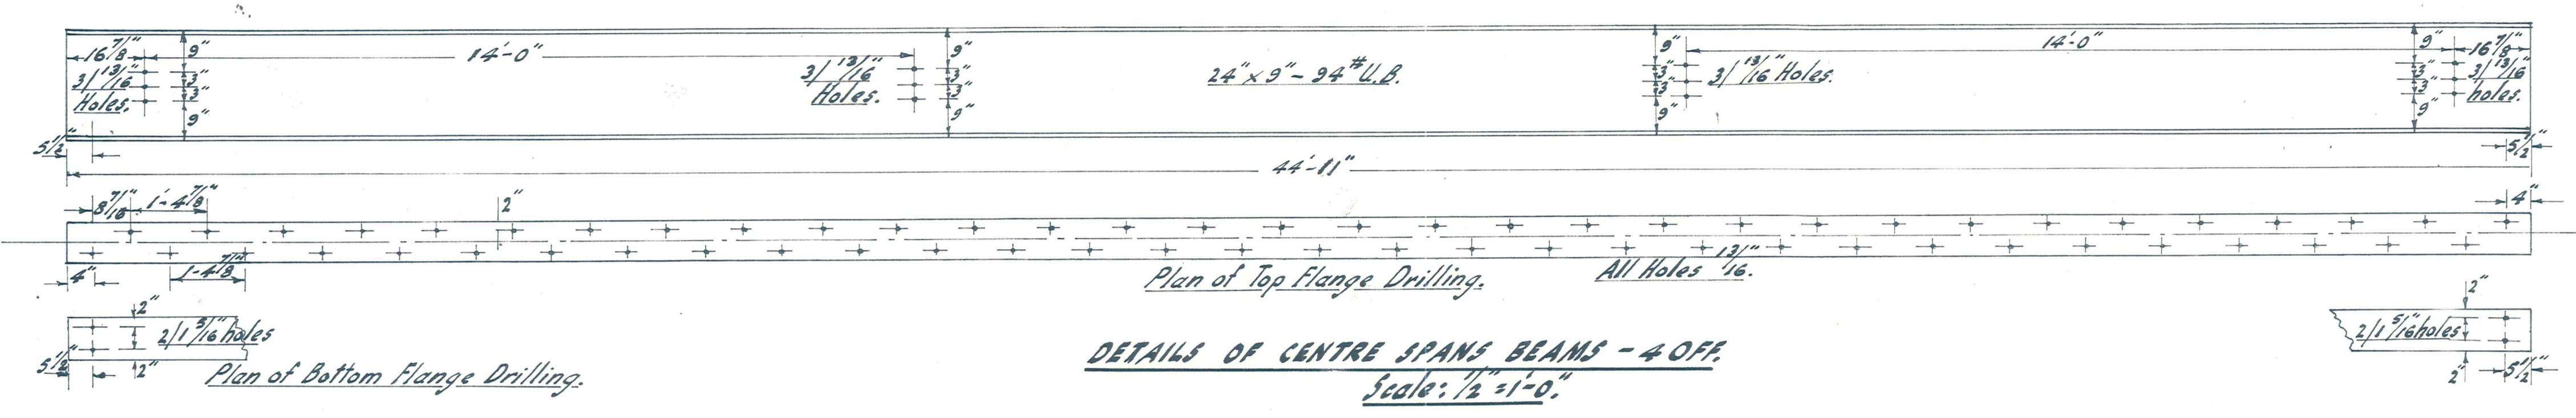 16 7/8"
14'-0"
9"
3"
3"
9"
3/ 13/16"
Holes.
3/ 13/16"
Holes.
9"
3"
3"
9"
24" x 9" - 94# U.B.
9"
3"
3"
9"
3/ 13/16" Holes.
14'-0"
9"
3"
3"
9"
16 7/8"
3/ 13/16"
holes.
5 1/2"
5 1/2"
44'-11"
8 7/16"
1'-4 7/8"
2"
4"
4"
1-4 7/8"
Plan of Top Flange Drilling.
All Holes 13/16".
2"
2/1 5/16" holes
5 1/2"
2"
Plan of Bottom Flange Drilling.
DETAILS OF CENTRE SPANS BEAMS - 4 OFF.
Scale: 1/2" = 1'-0".
2"
2/1 5/16" holes
2"
5 1/2"